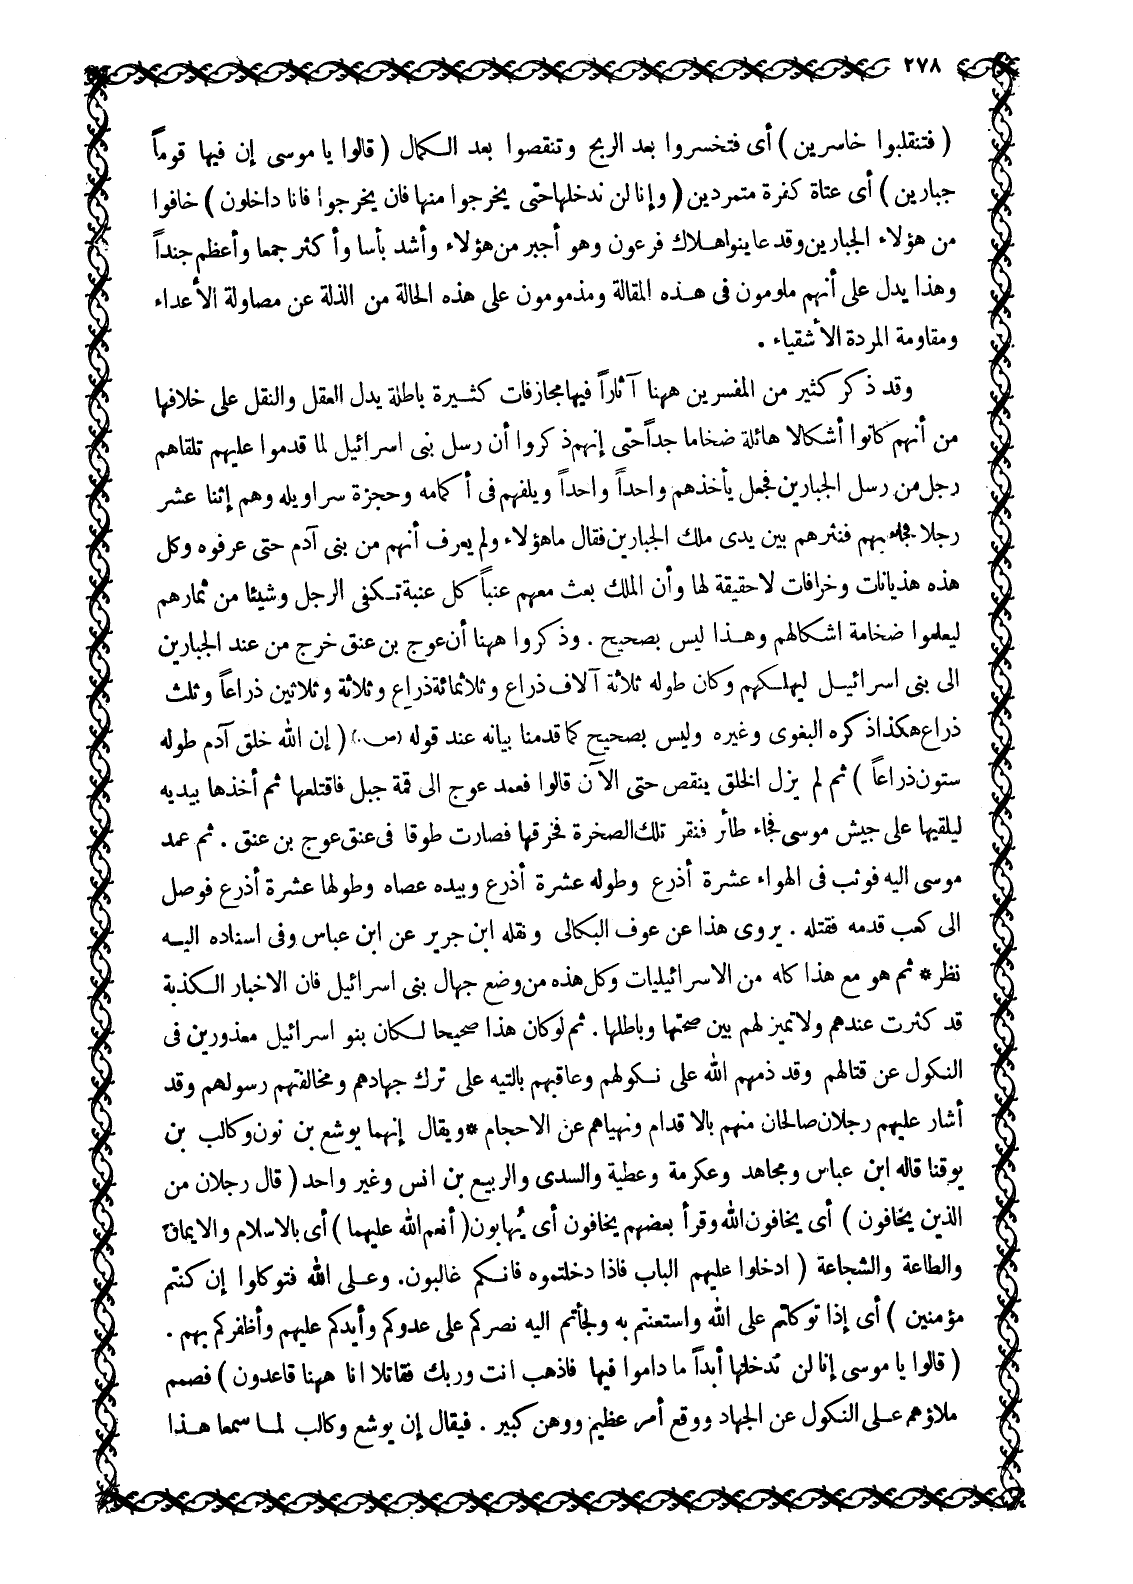 ٢٧٨
( فتنقلبوا خاسرين ) أى فتخسروا بعد الربح وتنقصوا بعد الكمال ( قالوا يا موسى إن فيها قوماً
جبارين ) أى عتاة كفرة متمردين ( وإنا لن ندخلها حتى يخرجوا منها فان يخرجوا فانا داخلون ) خافوا
من هؤلاء الجبارين وقد عاينوا هلاك فرعون وهو أجبر من هؤلاء وأشد بأسا وأكثر جمعا وأعظم جنداً
وهذا يدل على أنهم ملومون فى هذه المقالة ومذمومون على هذه الحالة من الذلة عن مصاولة الأعداء
ومقاومة المردة الأشقياء .
وقد ذكر كثير من المفسرين ههنا آثاراً فيها مجازفات كثيرة باطلة يدل العقل والنقل على خلافها
من أنهم كانوا أشكالا هائلة ضخاما جداً حتى إنهم ذكروا أن رسل بنى اسرائيل لما قدموا عليهم تلقاهم
رجل من رسل الجبارين فجعل يأخذهم واحداً واحداً ويلفهم فى أكمامه وحجزة سراويله وهم إثنا عشر
رجلا فجاء بهم فنثرهم بين يدى ملك الجبارين فقال ما هؤلاء ولم يعرف أنهم من بنى آدم حتى عرفوه وكل
هذه هذيانات وخرافات لا حقيقة لها وأن الملك بعث معهم عنباً كل عنبة تكفى الرجل وشيئا من ثمارهم
ليعلموا ضخامة اشكالهم وهذا ليس بصحيح . وذكروا ههنا أن عوج بن عنق خرج من عند الجبارين
الى بنى اسرائيل ليهلكهم وكان طوله ثلاثة آلاف ذراع وثلاثمائة ذراع وثلاثة وثلاثين ذراعاً وثلث
ذراع هكذا ذكره البغوى وغيره وليس بصحيح كما قدمنا بيانه عند قوله (ص.) ( إن الله خلق آدم طوله
ستون ذراعاً ) ثم لم يزل الخلق ينقص حتى الآن قالوا فعمد عوج الى قمة جبل فاقتلعها ثم أخذها بيديه
ليلقيها على جيش موسى فجاء طائر فنقر تلك الصخرة فخرقها فصارت طوقا فى عنق عوج بن عنق . ثم عمد
موسى اليه فوثب فى الهواء عشرة أذرع وطوله عشرة أذرع وبيده عصاه وطولها عشرة أذرع فوصل
الى كعب قدمه فقتله . يروى هذا عن عوف البكالى ونقله ابن جرير عن ابن عباس وفى اسناده اليه
نظر * ثم هو مع هذا كله من الاسرائيليات وكل هذه من وضع جهال بنى اسرائيل فان الاخبار الكذبة
قد كثرت عندهم ولا تميز لهم بين صحتها وباطلها . ثم لو كان هذا صحيحا لكان بنو اسرائيل معذورين فى
النكول عن قتالهم وقد ذمهم الله على نكولهم وعاقبهم بالتيه على ترك جهادهم ومخالفتهم رسولهم وقد
أشار عليهم رجلان صالحان منهم بالاقدام ونهياهم عن الاحجام * ويقال إنهما يوشع بن نون وكالب بن
يوقنا قاله ابن عباس ومجاهد وعكرمة وعطية والسدى والربيع بن انس وغير واحد ( قال رجلان من
الذين يخافون ) أى يخافون الله وقرأ بعضهم يخافون أى يُهابون ( أنعم الله عليهما ) أى بالاسلام والايمان
والطاعة والشجاعة ( ادخلوا عليهم الباب فاذا دخلتموه فانكم غالبون. وعلى الله فتوكلوا إن كنتم
مؤمنين ) أى إذا توكلتم على الله واستعنتم به ولجأتم اليه نصركم على عدوكم وأيدكم عليهم وأظفركم بهم .
( قالوا يا موسى إنا لن ندخلها أبداً ما داموا فيها فاذهب انت وربك فقاتلا انا ههنا قاعدون ) فصمم
ملاؤهم على النكول عن الجهاد ووقع أمر عظيم ووهن كبير . فيقال إن يوشع وكالب لما سمعا هذا